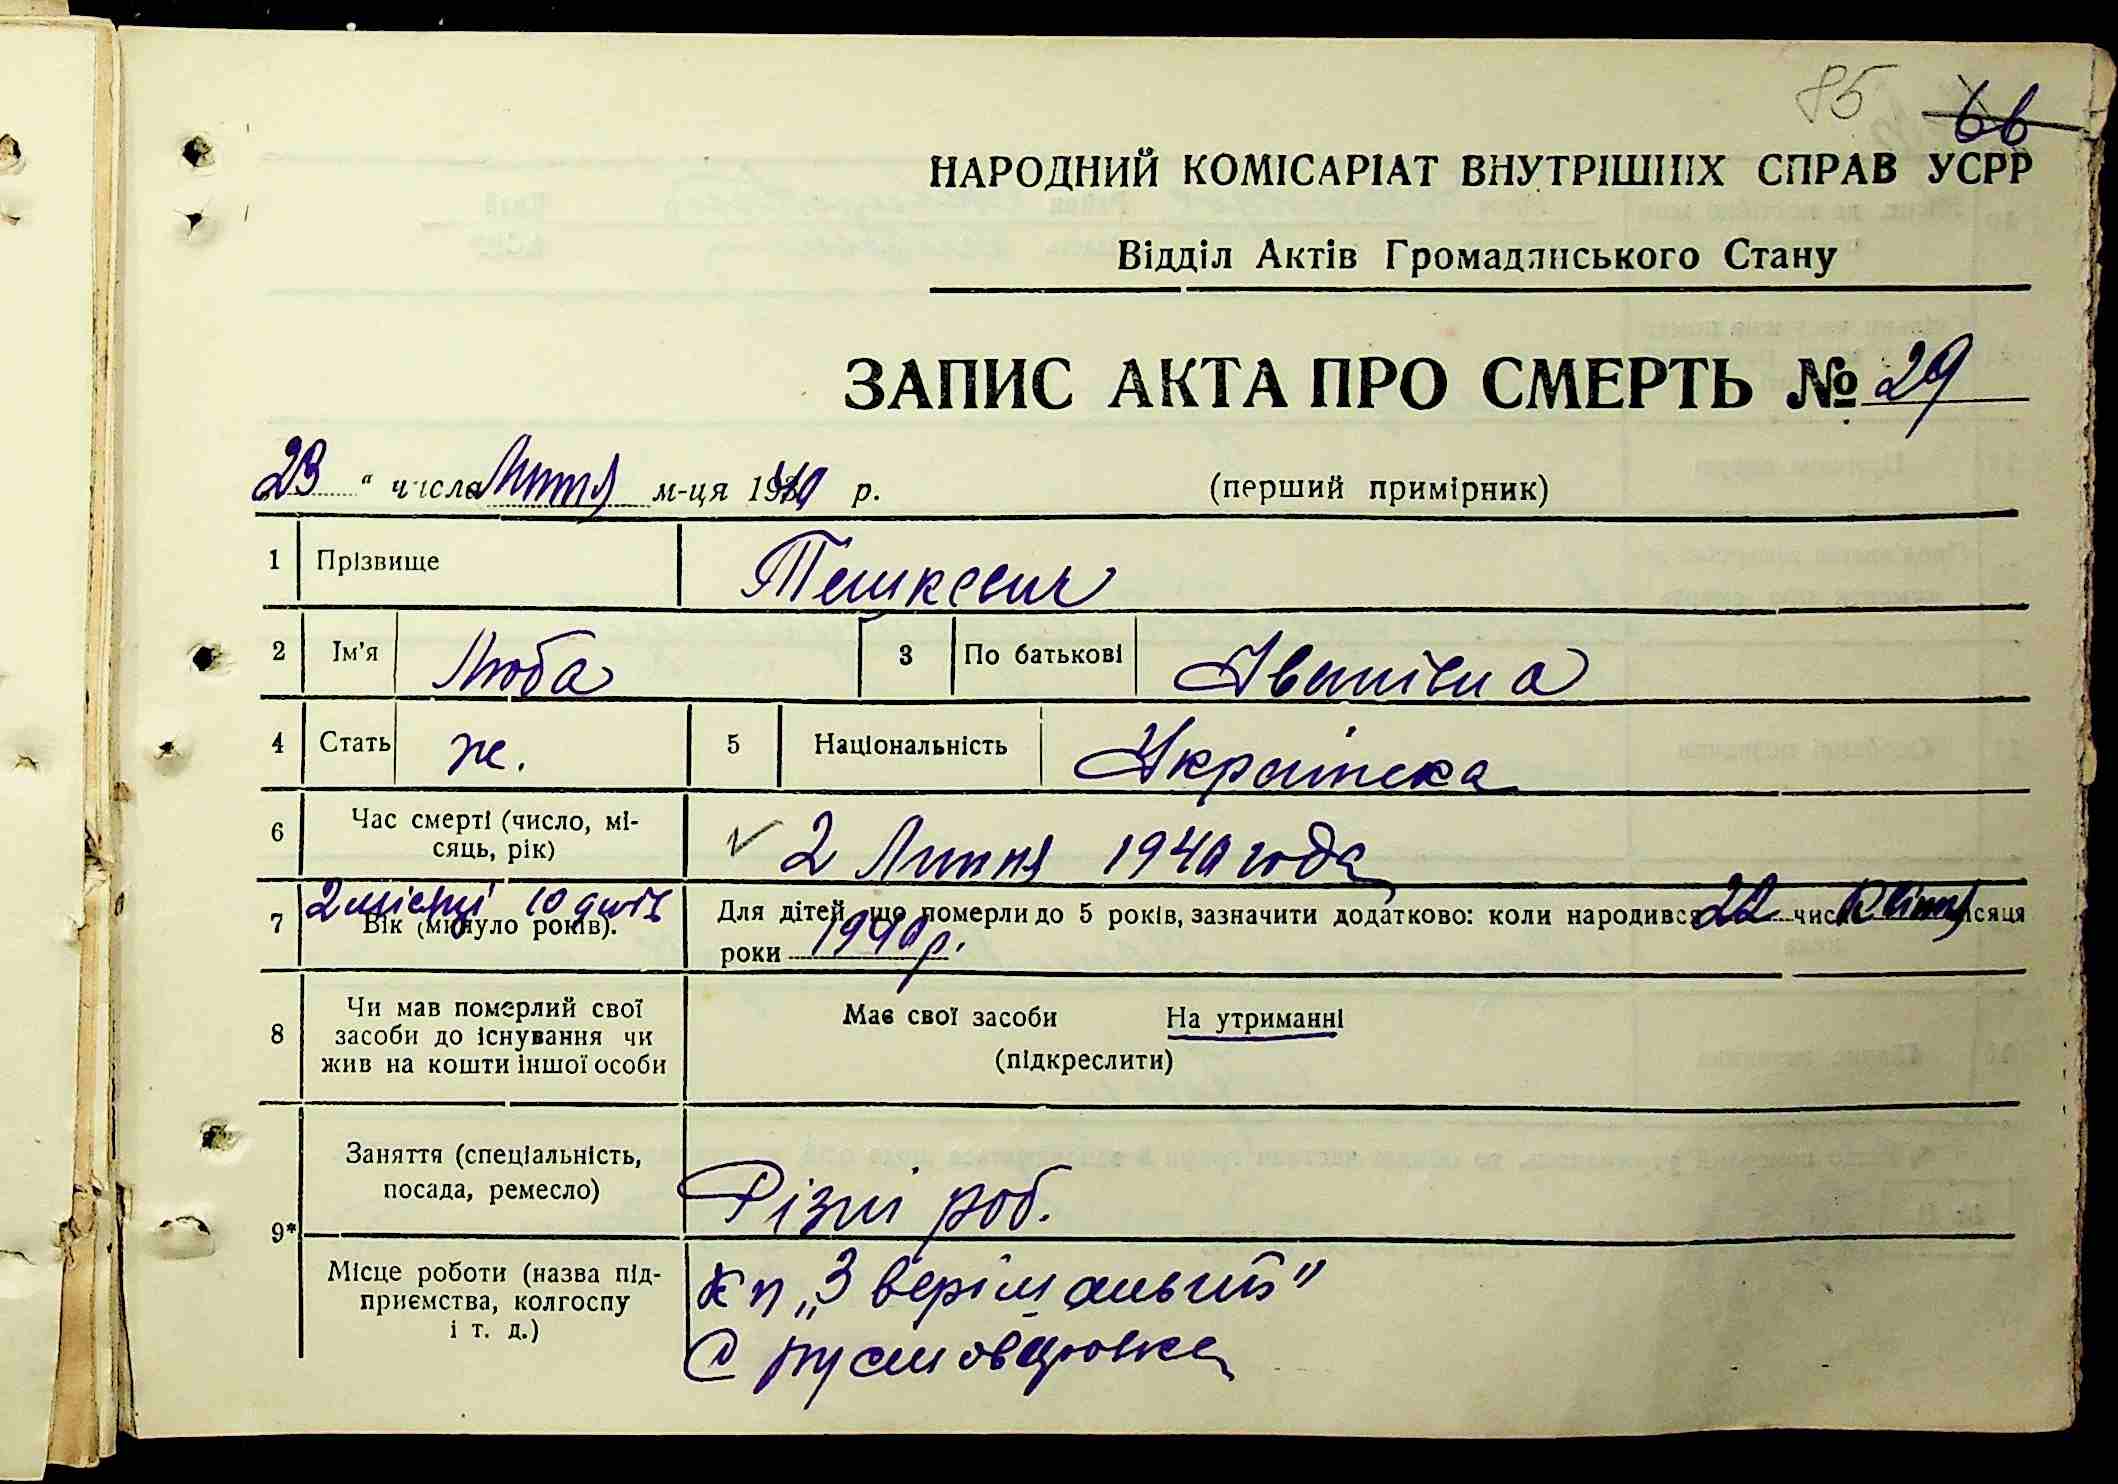 85 66
НАРОДНИЙ КОМІСАРІАТ ВНУТРІШНІХ СПРАВ УСРР
Відділ Актів Громадянського Стану
ЗАПИС АКТА ПРО СМЕРТЬ № 29
23 " числа Липня м-ця 1940 р. (перший примірник)
1 Прізвище Тешкевич
2 Ім'я Люба 3 По батькові
4 Стать ж. 5 Національність Українка
6 Час смерті (число, мі-
сяць, рік) 2 Липня 1940 года
7 2 місяці 10 днів
Вік (минуло років). Для дітей, що померли до 5 років, зазначити додатково: коли народився 22 числа Квітня місяця
роки 1940 р.
8 Чи мав померлий свої
засоби до існування чи
жив на кошти іншої особи
Має свої засоби На утриманні
(підкреслити)
9* Заняття (спеціальність,
посада, ремесло) Різні роб.
Місце роботи (назва під-
приємства, колгоспу
і т. д.)
кп „З
с